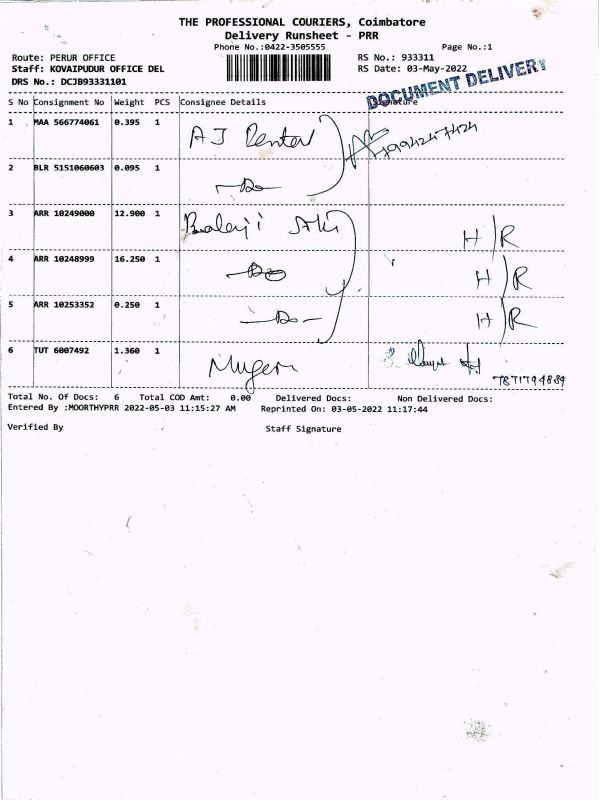 THE PROFESSIONAL COURIERS, Coimbatore
Delivery Runsheet - PRR
Phone No.:0422-3505555
Page No.:1
Route: PERUR OFFICE
RS No.: 933311
Staff: KOVAIPUDUR OFFICE DEL
RS Date: 03-May-2022
DRS No.: DCJB93331101
DOCUMENT DELIVERY
S No Consignment No Weight PCS Consignee Details Signature
1 MAA 566774061 0.395 1 AJ
2 BLR 5151060603 0.095 1 -Do-
3 ARR 10249000 12.900 1 Balaji H/R
4 ARR 10248999 16.250 1 -Do- H/R
5 ARR 10253352 0.250 1 -Do- H/R
6 TUT 6007492 1.360 1
7871794889
Total No. Of Docs: 6 Total COD Amt: 0.00 Delivered Docs: Non Delivered Docs:
Entered By :MOORTHYPRR 2022-05-03 11:15:27 AM Reprinted On: 03-05-2022 11:17:44
Verified By Staff Signature